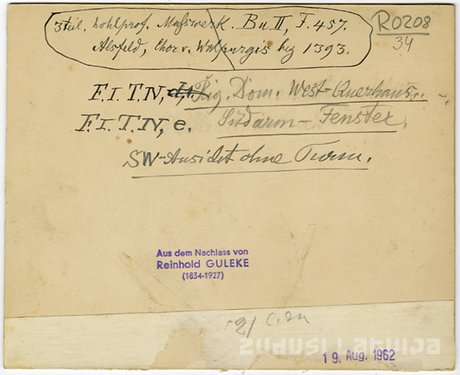 3teil. hohlprof. Masswerk. Bu. II, F. 457.
Alsfeld, Chor v. Walpurgis beg 1393.
R0208
34
F.I.T.N, Rig. Dom. West-Querhaus.
F.I.T.N, e. Südarm-Fenster,
SW-Ansicht ohne Turm.
Aus dem Nachlass von
Reinhold GULEKE
(1834-1927)
zudusilatvija
19. Aug. 1962